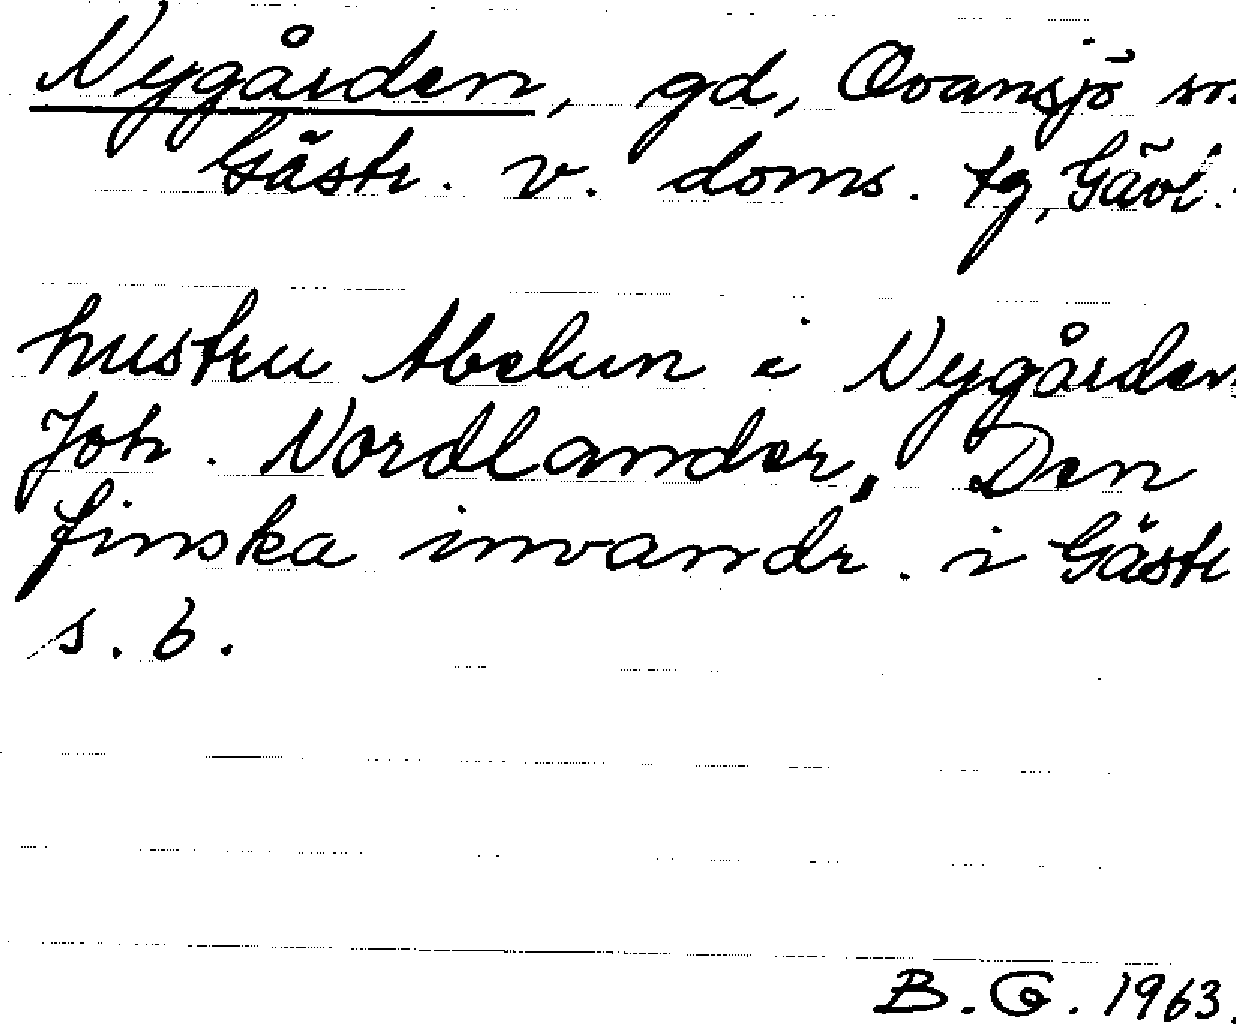 Nygården, gd, Ovansjö sn.
Gästr. v. doms. tg, Gävl.
hustru Abelun i Nygården,
Joh. Nordlander, Den
finska invandr. i Gästr
s. 6.
B. G. 1963.